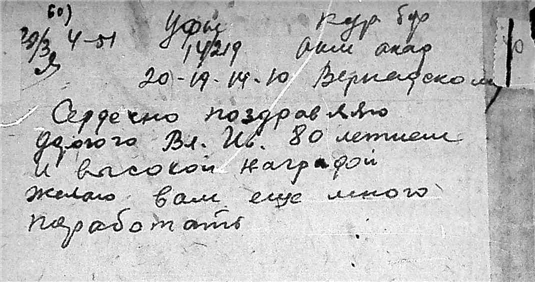 60)
Уфы кур бор
4-51 14/219 акад
20-19-14-10 Вернадскому
Сердечно поздравляю
дорогого Вл. Ив. 80 летием
и высокой наградой
желаю вам еще много
поработать